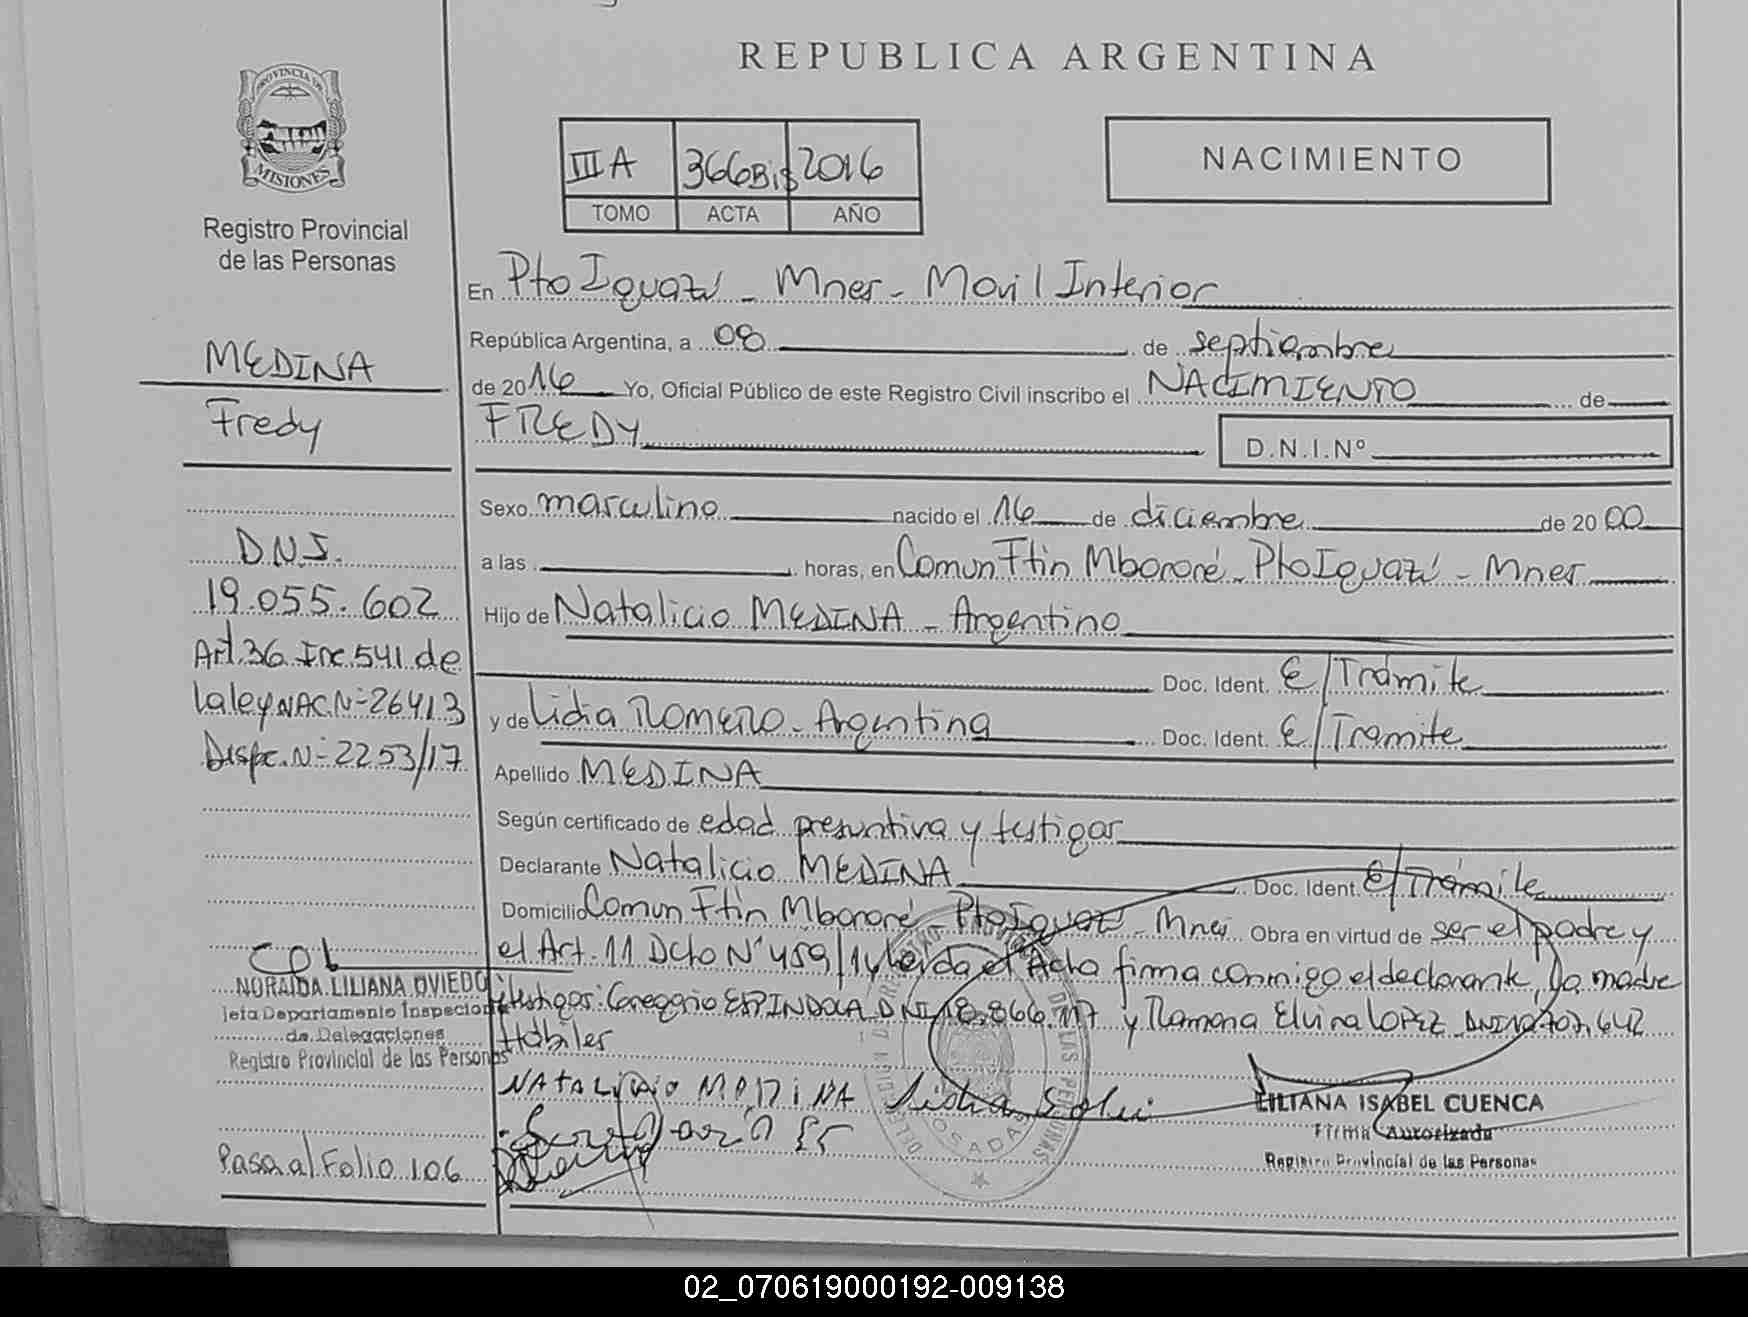 REPUBLICA ARGENTINA
PROVINCIA DE
MISIONES
Registro Provincial
de las Personas
IIIA 366Bis 2016
TOMO ACTA AÑO
NACIMIENTO
En Pto Iguazú - Mnes - Movil Interior
República Argentina, a 08 de septiembre
de 2016 Yo, Oficial Público de este Registro Civil inscribo el NACIMIENTO de
FREDY D.N.I.Nº
Sexo masculino nacido el 16 de diciembre de 2000
a las horas, en Comun Ftin Mbororé - Pto Iguazú - Mnes
Hijo de Natalicio MEDINA - Argentino
Doc. Ident. E/Trámite
y de Lidia ROMERO - Argentina Doc. Ident. E/Tramite
Apellido MEDINA
Según certificado de edad presuntiva y testigos
Declarante Natalicio MEDINA Doc. Ident. E/Trámite
Domicilio Comun Ftin Mbororé Pto Iguazú - Mnes Obra en virtud de ser el padre y
el Art. 11 Dcto Nº 459/ Leída el Acta firma conmigo el declarante, la madre
y testigos: Gregorio ESPINDOLA DNI 18.866.117 y Ramona Elvira LOPEZ DNI 707.642
Hábiles
NATALICIO MEDINA Lidia
MEDINA
Fredy
D.N.I.
19.055.602
Art. 36 Inc. 541 de
la ley NAC.Nº 26413
Dispc. Nº 2253/17
NORAIDA LILIANA OVIEDO
Jefa Departamento Inspeccion
de Delegaciones
Registro Provincial de las Personas
Pasa al Folio 106
LILIANA ISABEL CUENCA
Firma Autorizada
Registro Provincial de las Personas
POSADAS
02_070619000192-009138